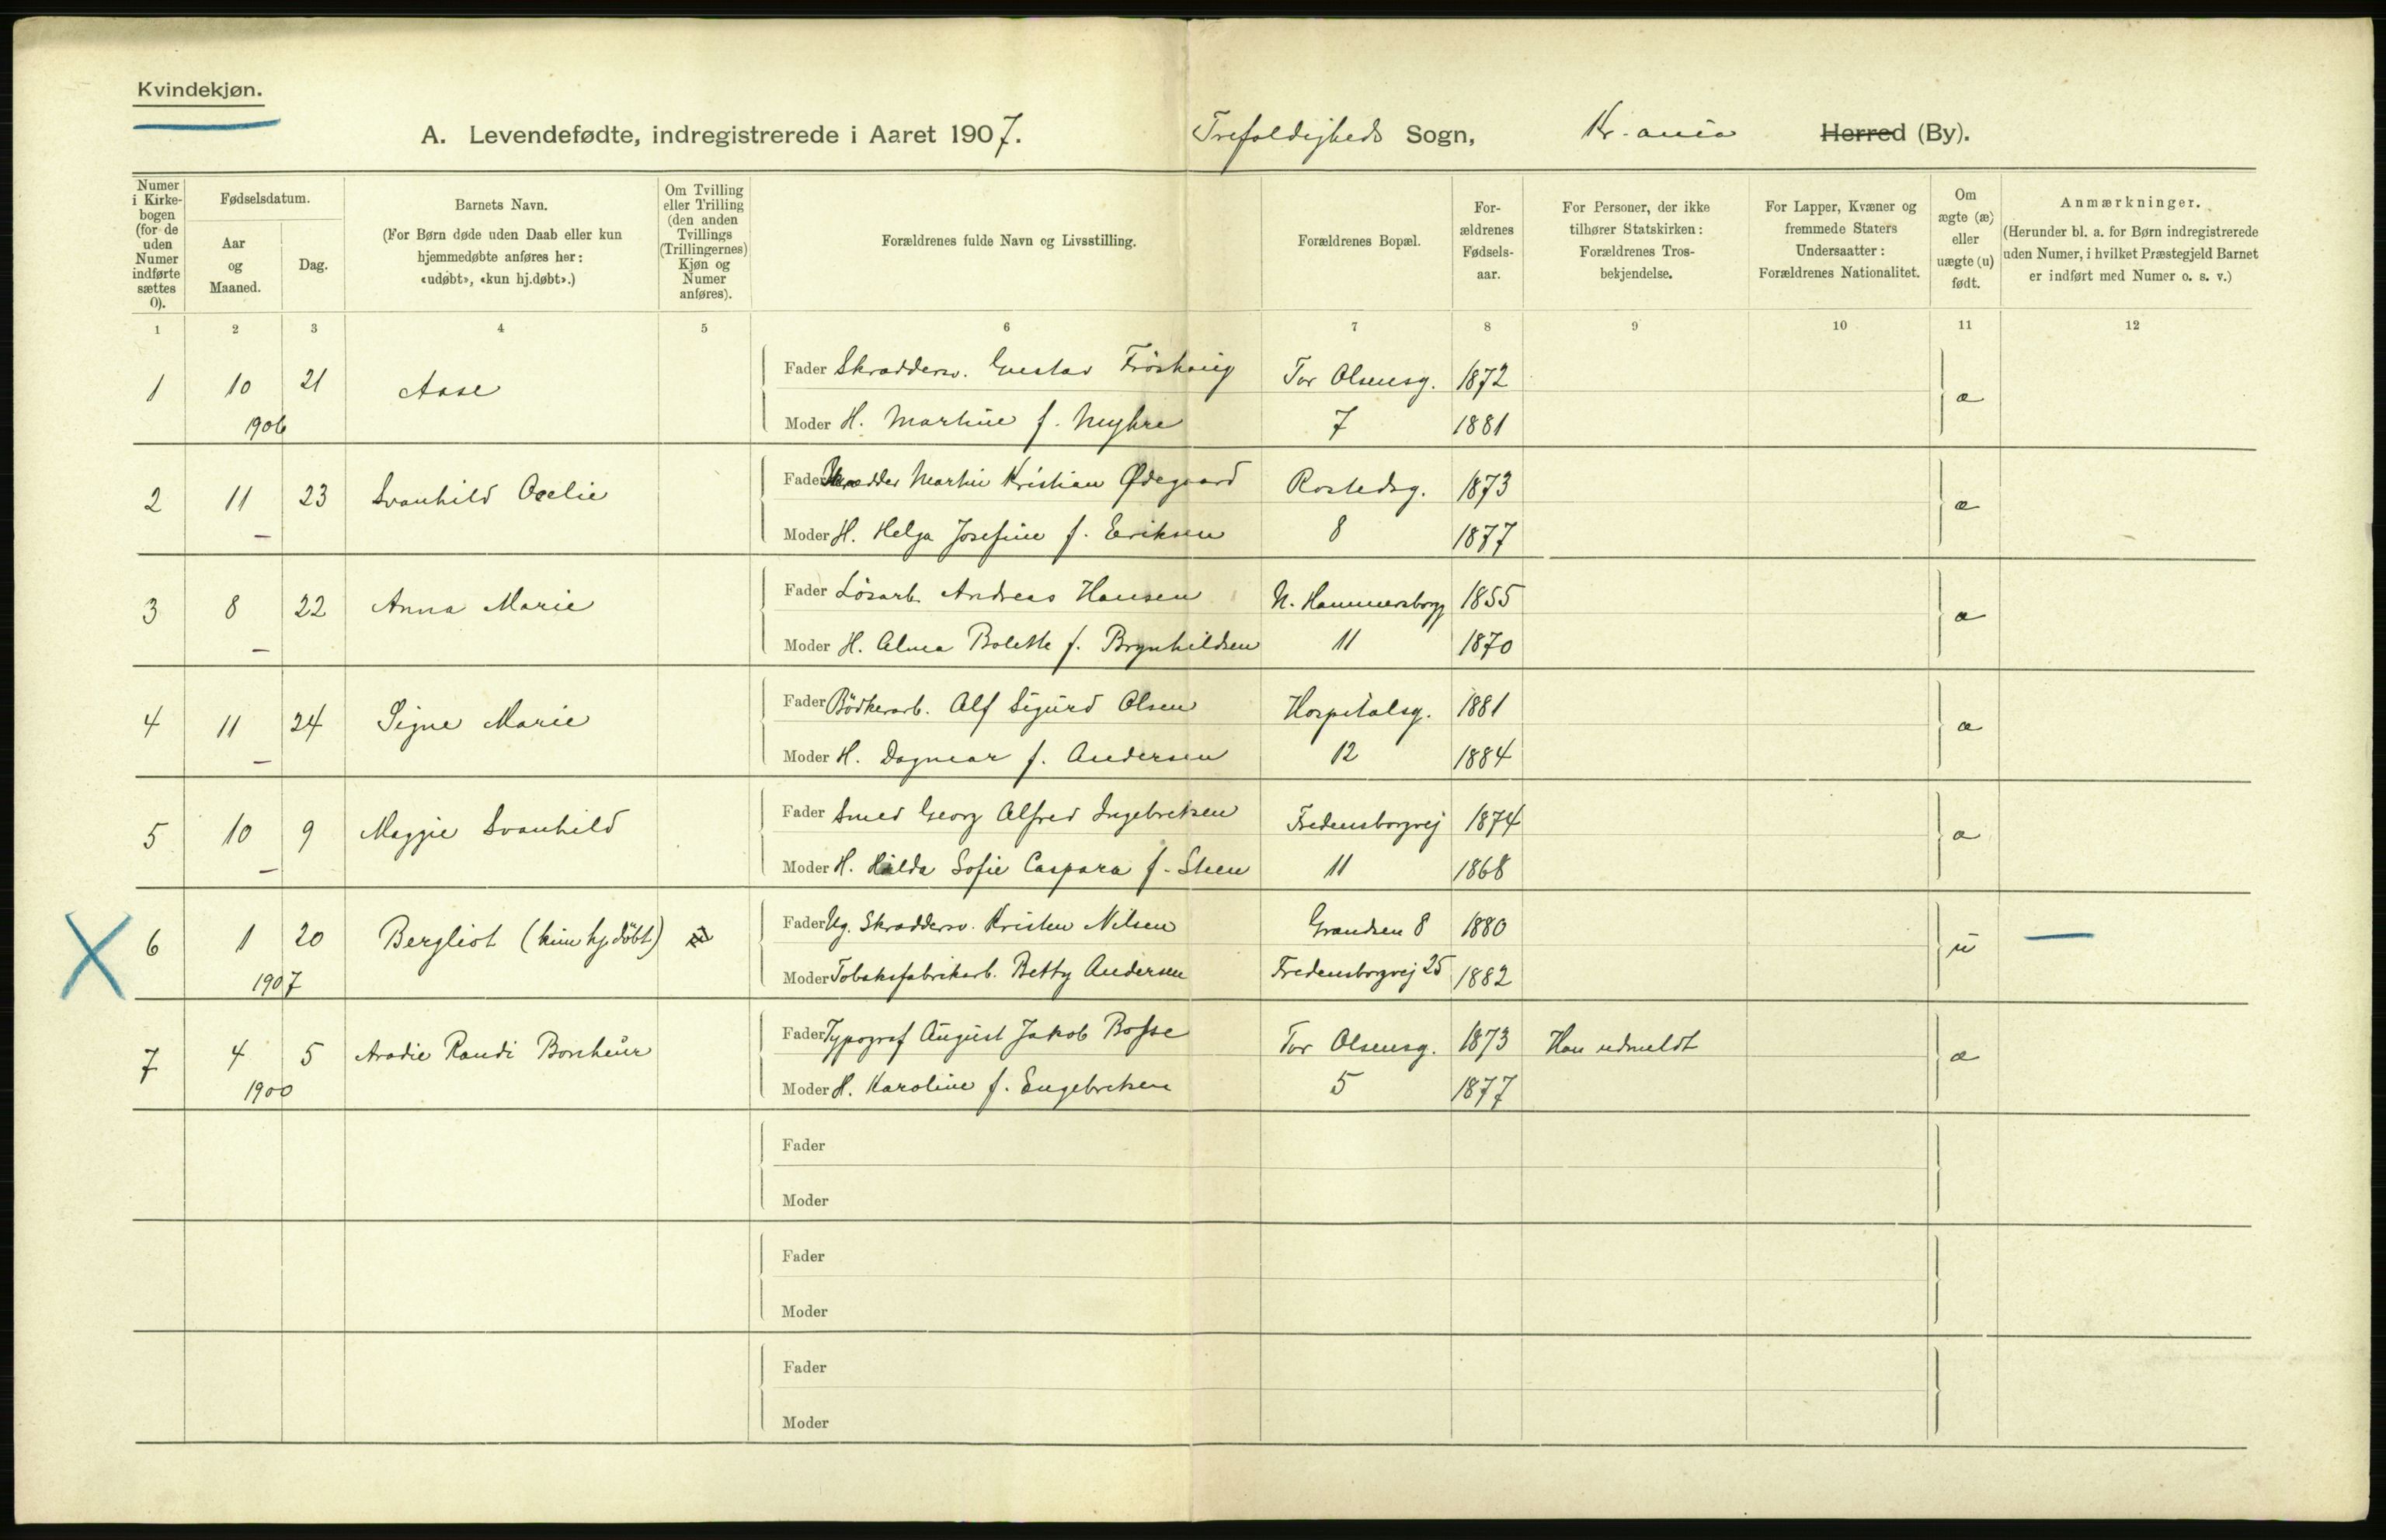 Kvindekjøn.
A. Levendefødte, indregistrerede i Aaret 1907. Trefoldigheds Sogn, Kr.ania Herred (By).
Numer i Kirkebogen (for de uden Numer indførte sættes 0).
Fødselsdatum.
Aar og Maaned.
Dag.
Barnets Navn.
(For Børn døde uden Daab eller kun hjemmedøbte anføres her: «udøbt», «kun hj.døbt».)
Om Tvilling eller Trilling (den anden Tvillings (Trillingernes) Kjøn og Numer anføres).
Forældrenes fulde Navn og Livsstilling.
Forældrenes Bopæl.
Forældrenes Fødselsaar.
For Personer, der ikke tilhører Statskirken: Forældrenes Trosbekjendelse.
For Lapper, Kvæner og fremmede Staters Undersaatter: Forældrenes Nationalitet.
Om ægte (æ) eller uægte (u) født.
Anmærkninger.
(Herunder bl. a. for Børn indregistrerede uden Numer, i hvilket Præstegjeld Barnet er indført med Numer o. s. v.)
1 2 3 4 5 6 7 8 9 10 11 12
1 10 21 Aase Fader Skrædderv. Gustav Tor Olsensg. 1872 æ
1906 Moder H. Martine f. Myhre 7 1881
2 11 23 Svanhild Fader Skrædder Martin Kristian Ødegaard Rostedsg. 1873 æ
– Moder H. Helga Josefine f. Eriksen 8 1877
3 8 22 Anna Marie Fader Løsarb. Andreas Hansen N. Hammersborgg 1855 æ
– Moder H. Alma Bolette f. Brynhildsen 11 1870
4 11 24 Signe Marie Fader Bödkerarb. Alf Sigurd Olsen Hospitalsg. 1881 æ
– Moder H. Dagmar f. Andersen 12 1884
5 10 9 Maggie Svanhild Fader Smed Georg Alfred Ingebretsen Fredensborgvej 1874 æ
– Moder H. Hilda Sofie Caspara f. Steen 11 1868
6 1 20 Bergliot (kun hj.döbt) Fader Ug. Skrædderv. Kristen Nilsen Grændsen 8 1880 u —
1907 Moder Tobaksfabrikarb. Betty Andersen Fredensborgvej 25 1882
7 4 5 Randi Bonheur Fader Typograf August Jakob Bosse Tor Olsensg. 1873 Han udmeldt æ
1900 Moder H. Karoline f. Engebretsen 5 1877
Fader
Moder
Fader
Moder
Fader
Moder